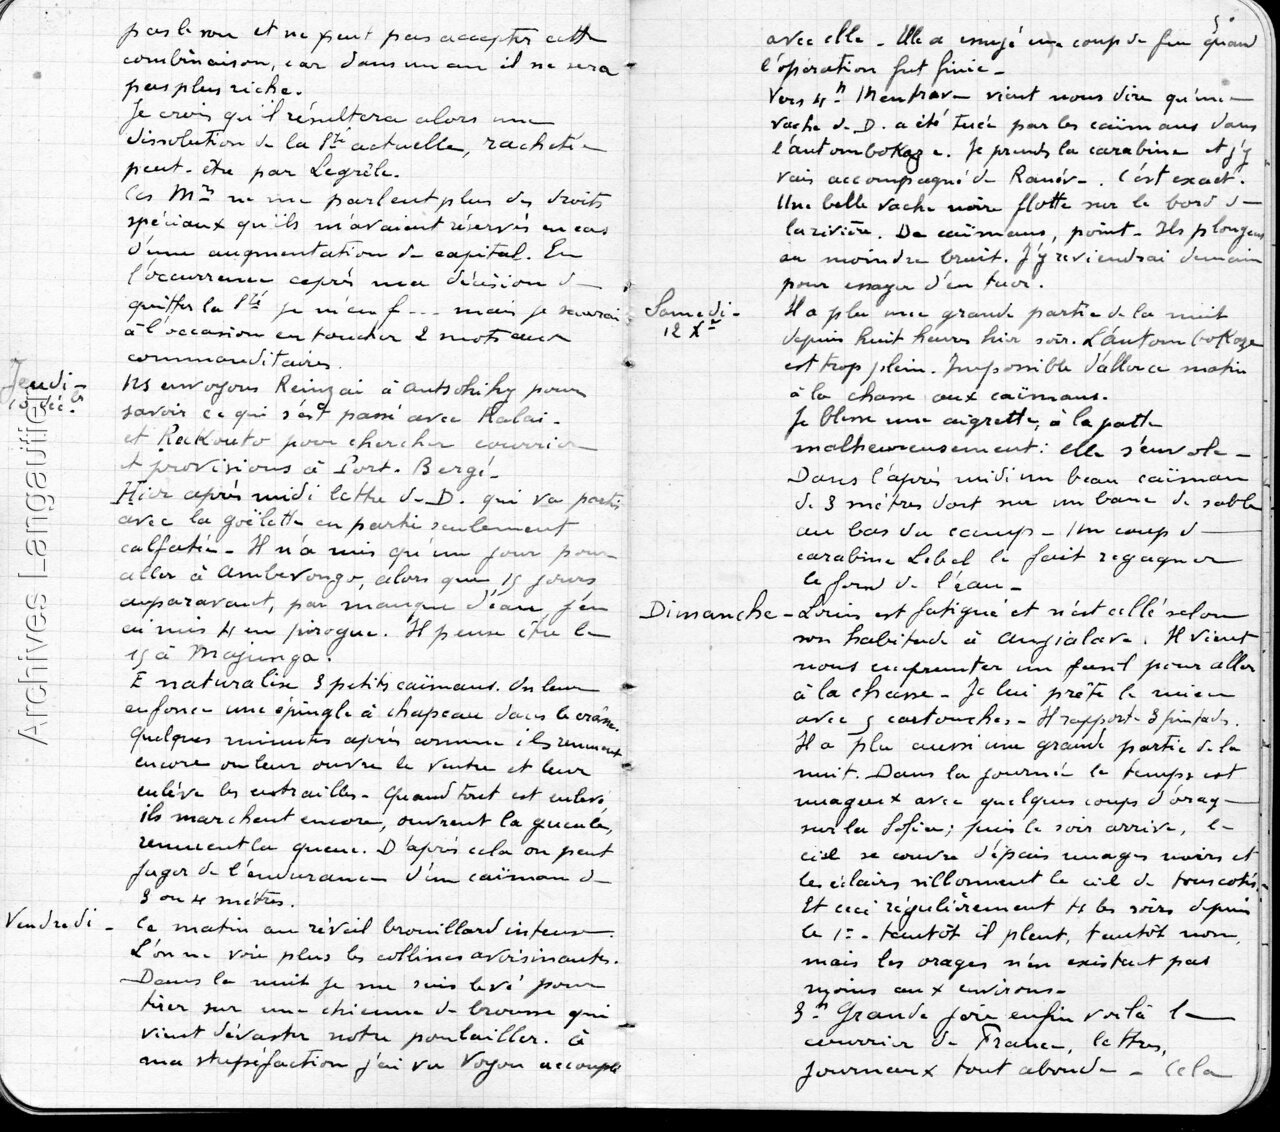 pas le sou et ne peut pas accepter cette
combinaison, car dans un an il ne sera
pas plus riche.
Je crois qu'il résultera alors une
dissolution de la Sté actuelle, rachetée
peut-être par Legrêle.
Ces Mrs ne me parlent plus des droits
spéciaux qu'ils m'avaient réservés en cas
d'une augmentation de capital. En
l'occurrence après ma décision de
quitter la Sté je m'en f... mais je saurai
à l'occasion en toucher 2 mots aux
commanditaires.
Jeudi-
10 Déc.
Ns envoyons Reinzai à Antsohihy pour
savoir ce qui s'est passé avec Kalai-
et Rakouto pour chercher courrier
et provisions à Port-Bergé-
Hier après midi lettre de D. qui va partir
avec la goëlette en partie seulement
calfatée- Il n'a mis qu'un jour pour
aller à Ambevongo, alors que 15 jours
auparavant, par manque d'eau, j'en
ai mis 4 en pirogue. Il pense être le
15 à Majunga.
E naturalise 3 petits caïmans. On leur
enfonce une épingle à chapeau dans le crâne.
Quelques minutes après comme ils remuent
encore on leur ouvre le ventre et leur
enlève les entrailles- Quand tout est enlevé
ils marchent encore, ouvrent la gueule,
remuent la queue. D'après cela on peut
juger de l'endurance d'un caïman de
3 ou 4 mètres.
Vendredi-
Ce matin au réveil brouillard intense.
L'on ne voit plus les collines avoisinantes.
Dans la nuit je me suis levé pour
tirer sur une chienne de brousse qui
vient dévaster notre poulailler. à
ma stupéfaction j'ai vu Voyou accouplé
5.
avec elle- Elle a essuyé un coup de feu quand
l'opération fut finie-
Vers 4h vient nous dire qu'une
vache de D. a été tuée par les caïmans dans
l'Antombokaze. Je prends la carabine et j'y
vais accompagné de Raniv-. C'est exact.
Une belle vache noire flotte sur le bord de
la rivière. De caïmans, point- Ils plongent
au moindre bruit. J'y reviendrai demain
pour essayer d'en tuer.
Samedi-
12 Xbre
Il a plu une grande partie de la nuit
depuis huit heures hier soir. L'Antombokaze
est trop plein. Impossible d'aller ce matin
à la chasse aux caïmans.
Je blesse une aigrette, à la patte
malheureusement: elle s'envole-
Dans l'après midi un beau caïman
de 3 mètres dort sur un banc de sable
au bas du camp- Un coup de
carabine Lebel le fait regagner
le fond de l'eau-
Dimanche-
Louis est fatigué et n'est allé selon
son habitude à Angialava. Il vient
nous emprunter un fusil pour aller
à la chasse- Je lui prête le mien
avec 5 cartouches- Il rapporte 3 pintads.
Il a plu aussi une grande partie de la
nuit. Dans la journée le temps est
nuageux avec quelques coups d'orage
sur la Sofia; puis le soir arrive, le
ciel se couvre d'épais nuages noirs et
les éclairs sillonnent le ciel de tous cotés.
Et ceci régulièrement ts les soirs depuis
le 1er- tantôt il pleut, tantôt non,
mais les orages n'en existent pas
moins aux environs-
3h Grande joie enfin voilà le
courrier de France, lettres,
journaux tout abonde- Cela
Archives Langautier